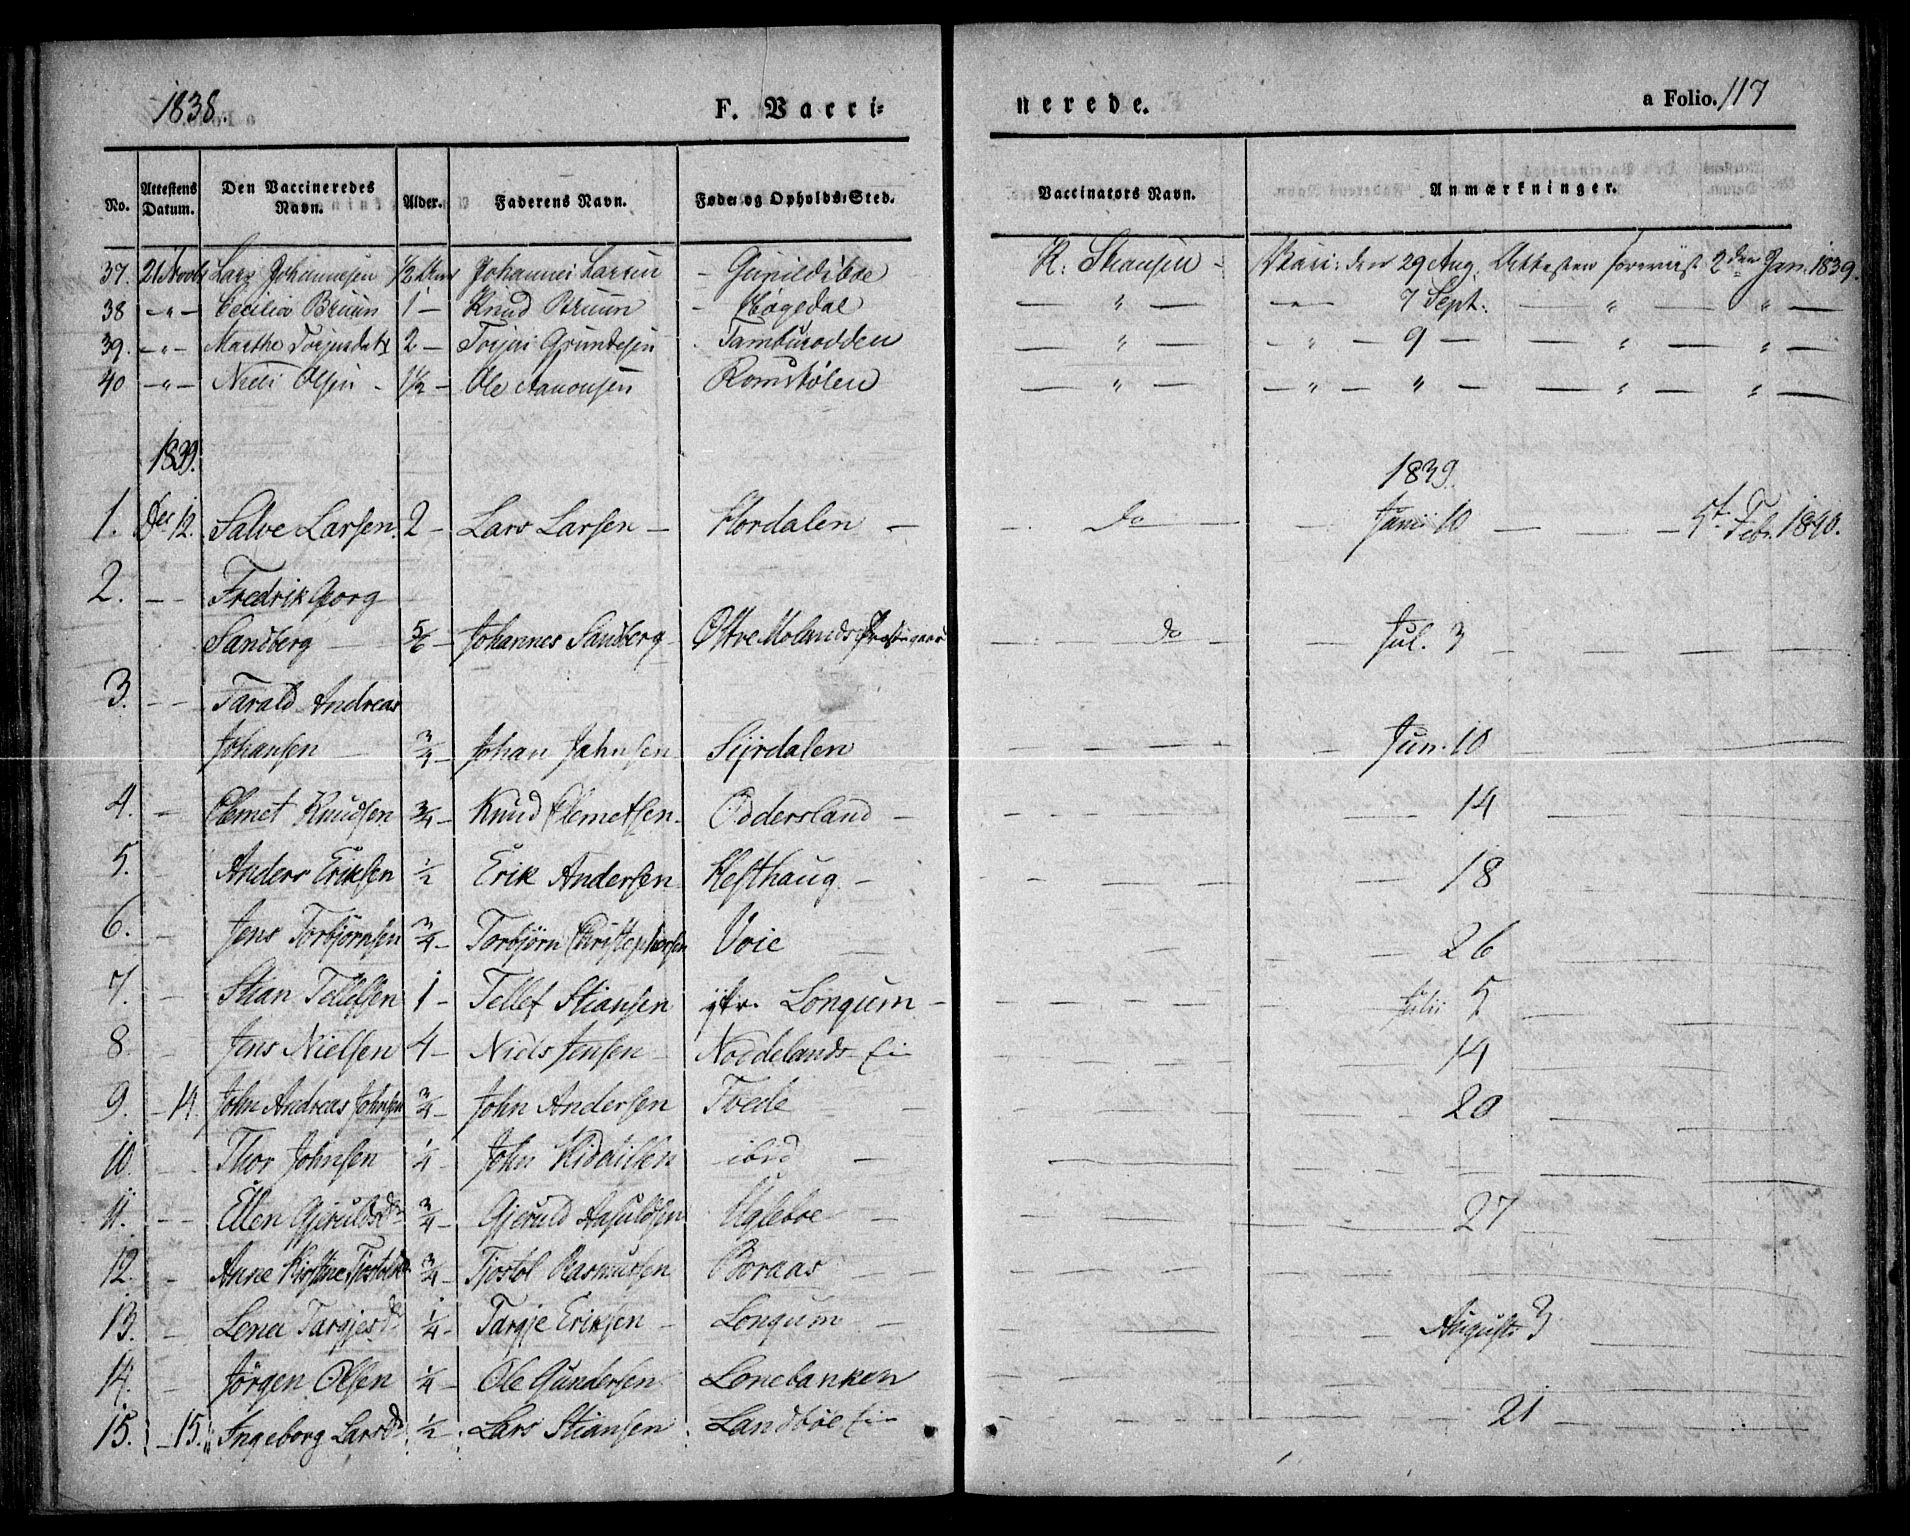 1838. F. Vacci= nerede. a Folio. 117
No. Attestens Datum. Den Vaccineredes Navn. Alder. Faderens Navn. Føde= og Opholds=Sted. Vaccinators Navn. Anmærkninger.
37. 21 Novbr Lars Johannesen ½ Johannes Larsen - Gunildsboe R. Stausen - den 29 Aug. Attesten foreviist 2den Jan. 1839.
38 -„- Cecilia Bruun 1 - Knud Bruun - Høgedal — „ — 7 Sept. — „ — „ —
39. -„- Marthe Torjusdatr 2 - Torjus Grundesen - Tambursodden — „ — - „ - 9 — — „ — „ —
40 -„- Niels Olsen - 1½ - Ole Aanonsen Romstølen — „ — - „ - „ — — „ — „ —
1839. 1839.
1. Dec 12. Salve Larsen. 2 - Lars Larsen - Hordalen - - Do - - Junii 10 — — - 5t Febr. 1840.
2. - - Fredrik Georg
Sandberg - 5/6 - Johannes Sandberg - Østre Molands Præstegaard - Do - - Jul. 3 -
3. - - Tarald Andreas
Johansen - ¾ - Johan Jahnsen - Syrdalen - Jun. 10
4. - Clemet Knudsen ¾ - Knud Clemetsen. Oddersland - 14
5. - Anders Eriksen ½ Erik Andersen Hesthaug - 18
6. - Jens Torbjørnsen ¾ - Torbjørn Christophersen Voie 26
7. - Stian Tellefsen 1 - Tellef Stiansen yttr. Longum - Julii 5
8. - Jens Nielsen 4 - Niels Jensen - Noddelands Ei - 14
9. - 14. John Andreas Johnsen ¾ - John Andersen Tvede - 20
10. - - Thor Johnsen ¼ - John ibid -
11. - - Ellen Gjeruldsdr ¾ - Gjeruld Aasuldsen Ugleboe - 27
12. - Anne Kirstine Tjostolsdr ¾ - Tjostol Rasmussen Boraas -
13. - Lena Targjesdr ¼ - Targje Eriksen - Longum - Augusti 3
14. - Jørgen Olsen ¼ - Ole Gundersen Lonebanken
15. - 15. Ingeborg Larsdr ½ - Lars Stiansen Landbøe Ei - 21 -